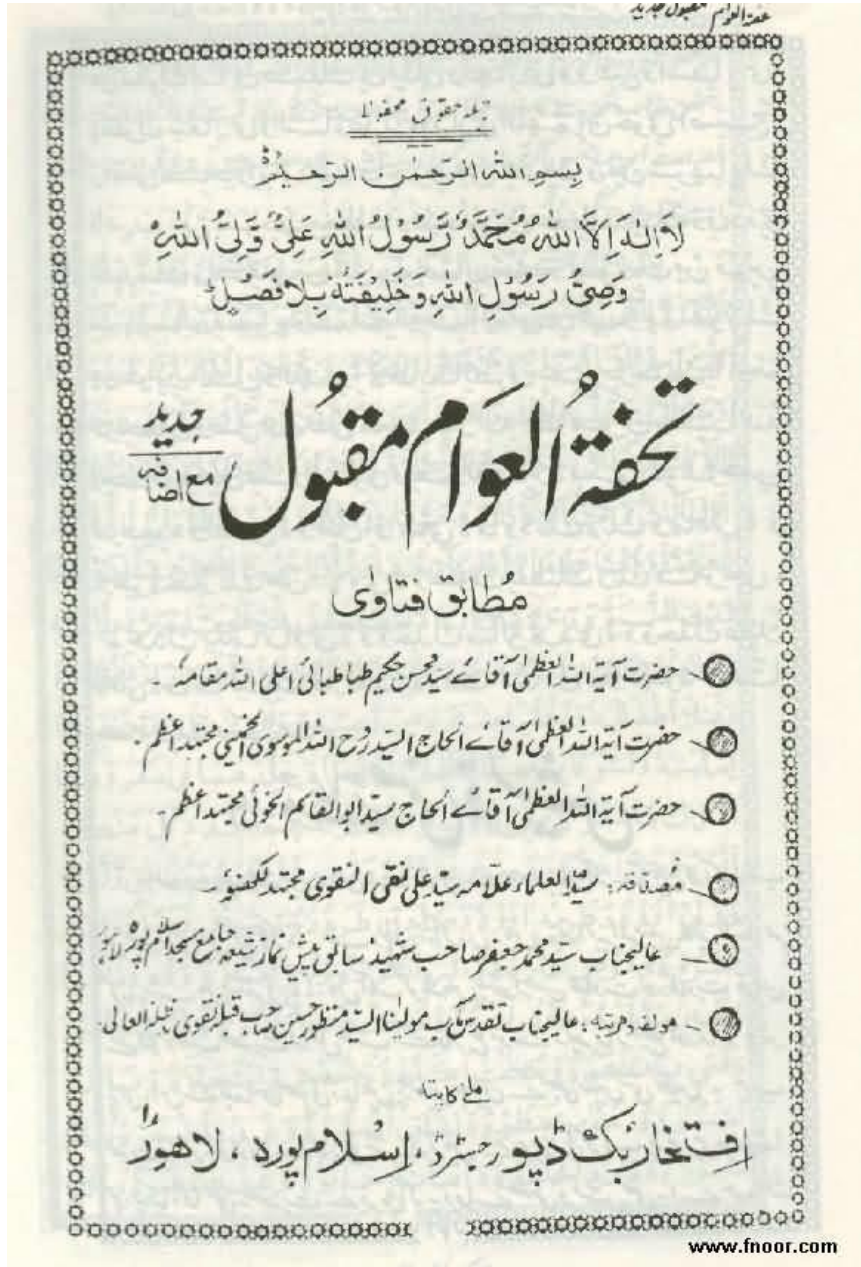 تحفۃ العوام مقبول جدید
جملہ حقوق محفوظ
بِسْمِ اللهِ الرَّحْمٰنِ الرَّحِيْمِ
لَا اِلٰهَ اِلَّا اللهُ مُحَمَّدٌ رَّسُوْلُ اللهِ عَلِیٌّ وَّلِیُّ اللهِ
وَصِیُّ رَسُوْلِ اللهِ وَ خَلِيْفَتُهٗ بِلَا فَصْلٍ
تحفۃُ العوَام مقبُول جدید
مع اضافہ
مُطابق فتاوٰی
حضرت آیۃ اللہ العظمٰی آقائے سید محسن حکیم طباطبائی اعلی اللہ مقامہٗ ۔
حضرت آیۃ اللہ العظمٰی آقائے الحاج السیّد رُوح اللہ الموسوی الخمینی مجتہد اعظم ۔
حضرت آیۃ اللہ العظمٰی آقائے الحاج سیّد ابوالقاسم الخوئی مجتہد اعظم ۔
مُصدقہ : سیّد العلماء علّامہ سیّد علی نقی النقوی مجتہد لکھنؤ ۔
عالیجناب سیّد محمد جعفر صاحب شہید سابق پیش نماز شیعہ جامع مسجد اسلام پورہ لاہور
مولفہ و مرتبہ : عالیجناب تقدس مآب مولیٰنا السیّد منظور حسین صاحب قبلہ نقوی مدظلہ العالی ۔
ملنے کا پتہ
افتخار بک ڈپو رجسٹرڈ ، اِسْلام پورہ ، لاہور
www.fnoor.com